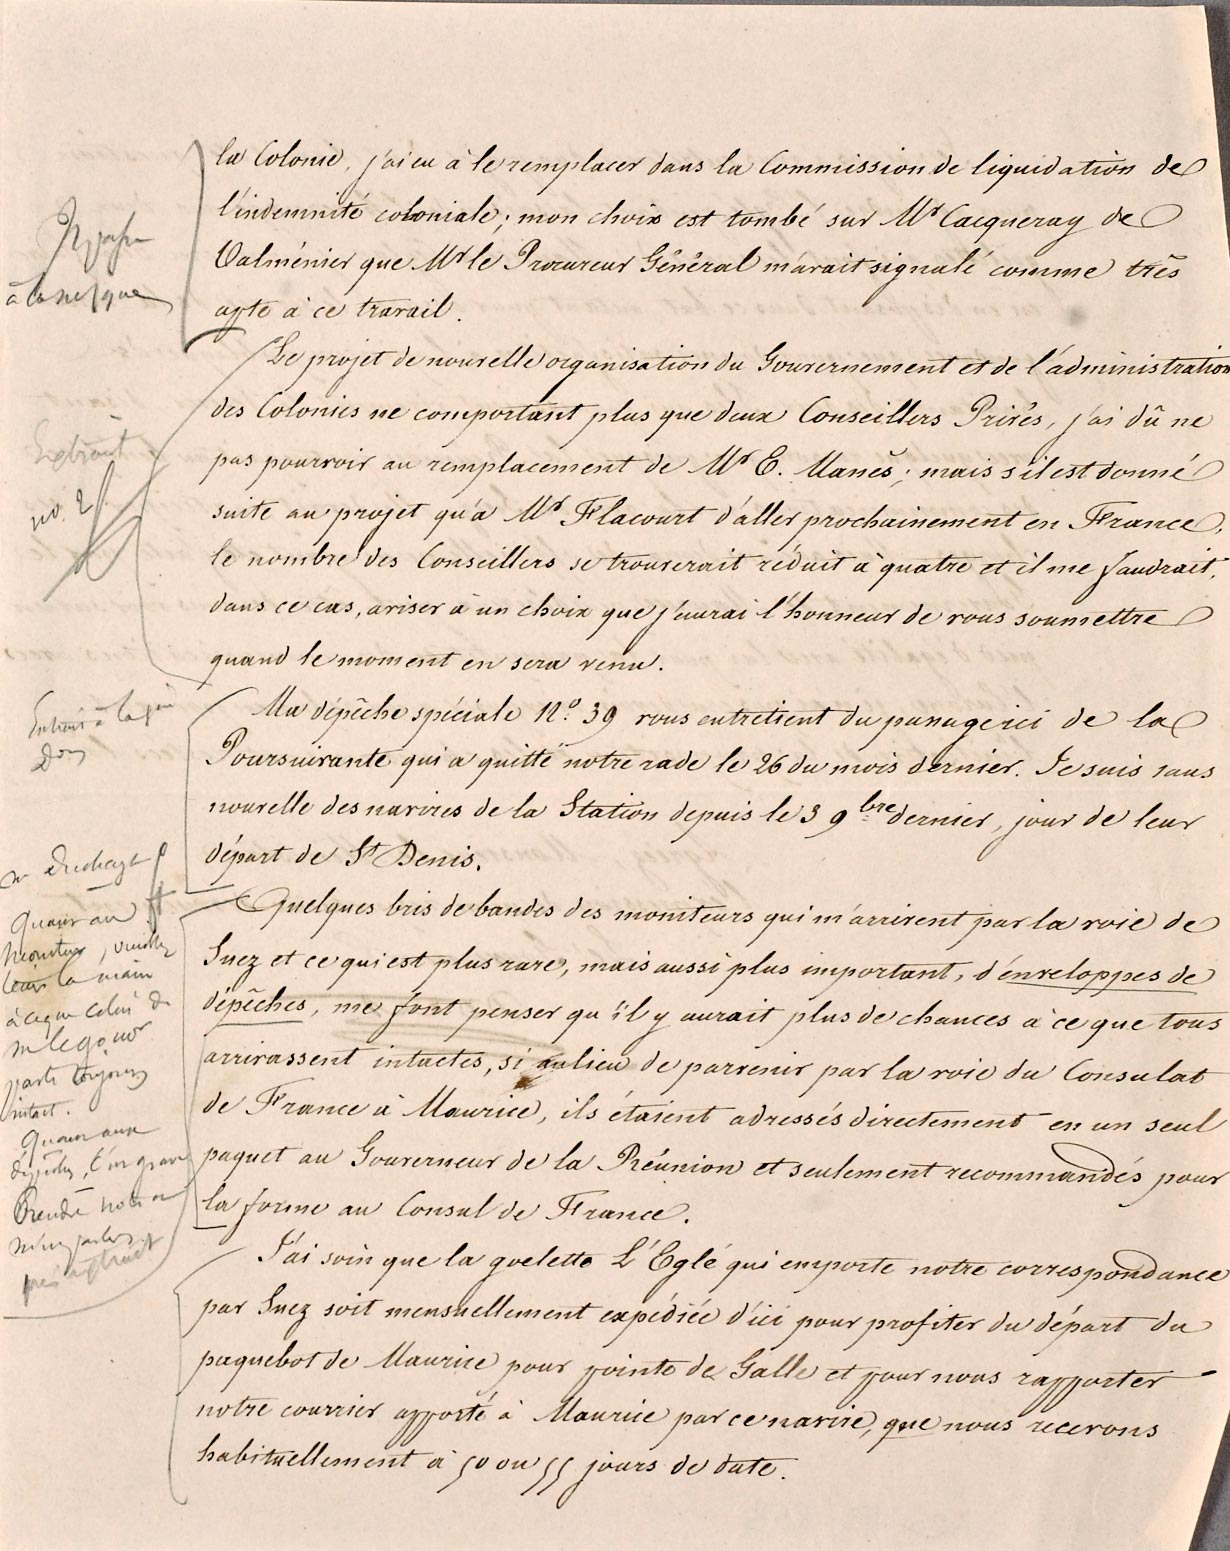 la Colonie, j'ai eu à le remplacer dans la Commission de liquidation de
l'indemnité coloniale; mon choix est tombé sur Mr Cacqueray de
Valménier que Mr le Procureur Général m'avait signalé comme très
apte à ce travail.
Le projet de nouvelle organisation du Gouvernement et de l'administration
des Colonies ne comportant plus que deux Conseillers Privés, j'ai dû ne
pas pourvoir au remplacement de Mr E. Manès; mais s'il est donné
suite au projet qu'a Mr Flacourt d'aller prochainement en France,
le nombre des Conseillers se trouverait réduit à quatre et il me faudrait,
dans ce cas, aviser à un choix que j'aurai l'honneur de vous soumettre
quand le moment en sera venu.
Ma dépêche spéciale No. 39 vous entretient du passage ici de la
Poursuivante qui a quitté notre rade le 26 du mois dernier. Je suis sans
nouvelle des navires de la Station depuis le 3 9bre dernier, jour de leur
départ de St Denis.
Quelques bris de bandes des moniteurs qui m'arrivent par la voie de
Suez et ce qui est plus rare, mais aussi plus important, d'enveloppes de
dépêches, me font penser qu'il y aurait plus de chances à ce que tous
arrivassent intactes, si au lieu de parvenir par la voie du Consulat
de France à Maurice, ils étaient adressés directement en un seul
paquet au Gouverneur de la Réunion et seulement recommandés pour
la forme au Consul de France.
J'ai soin que la goelette L'Eglé qui emporte notre correspondance
par Suez soit mensuellement expédiée d'ici pour profiter du départ du
paquebot de Maurice pour pointe de Galle et pour nous rapporter
notre courrier apporté à Maurice par ce navire, que nous recevons
habituellement à 50 ou 55 jours de date.
Extrait
no. 2
Extrait à la
Quant au
moniteur, veuillez
tenir la main
à ce que celui de
m le gouvor
parte toujours
intact.
Quant aux
dépêches, c'est grave
Prendre note